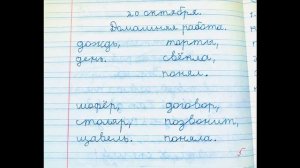 20 октября.
Домашняя работа.
дождь, торты,
день. свёкла,
понял.
шофёр, договор,
столяр, позвонит,
щавель. поняла.